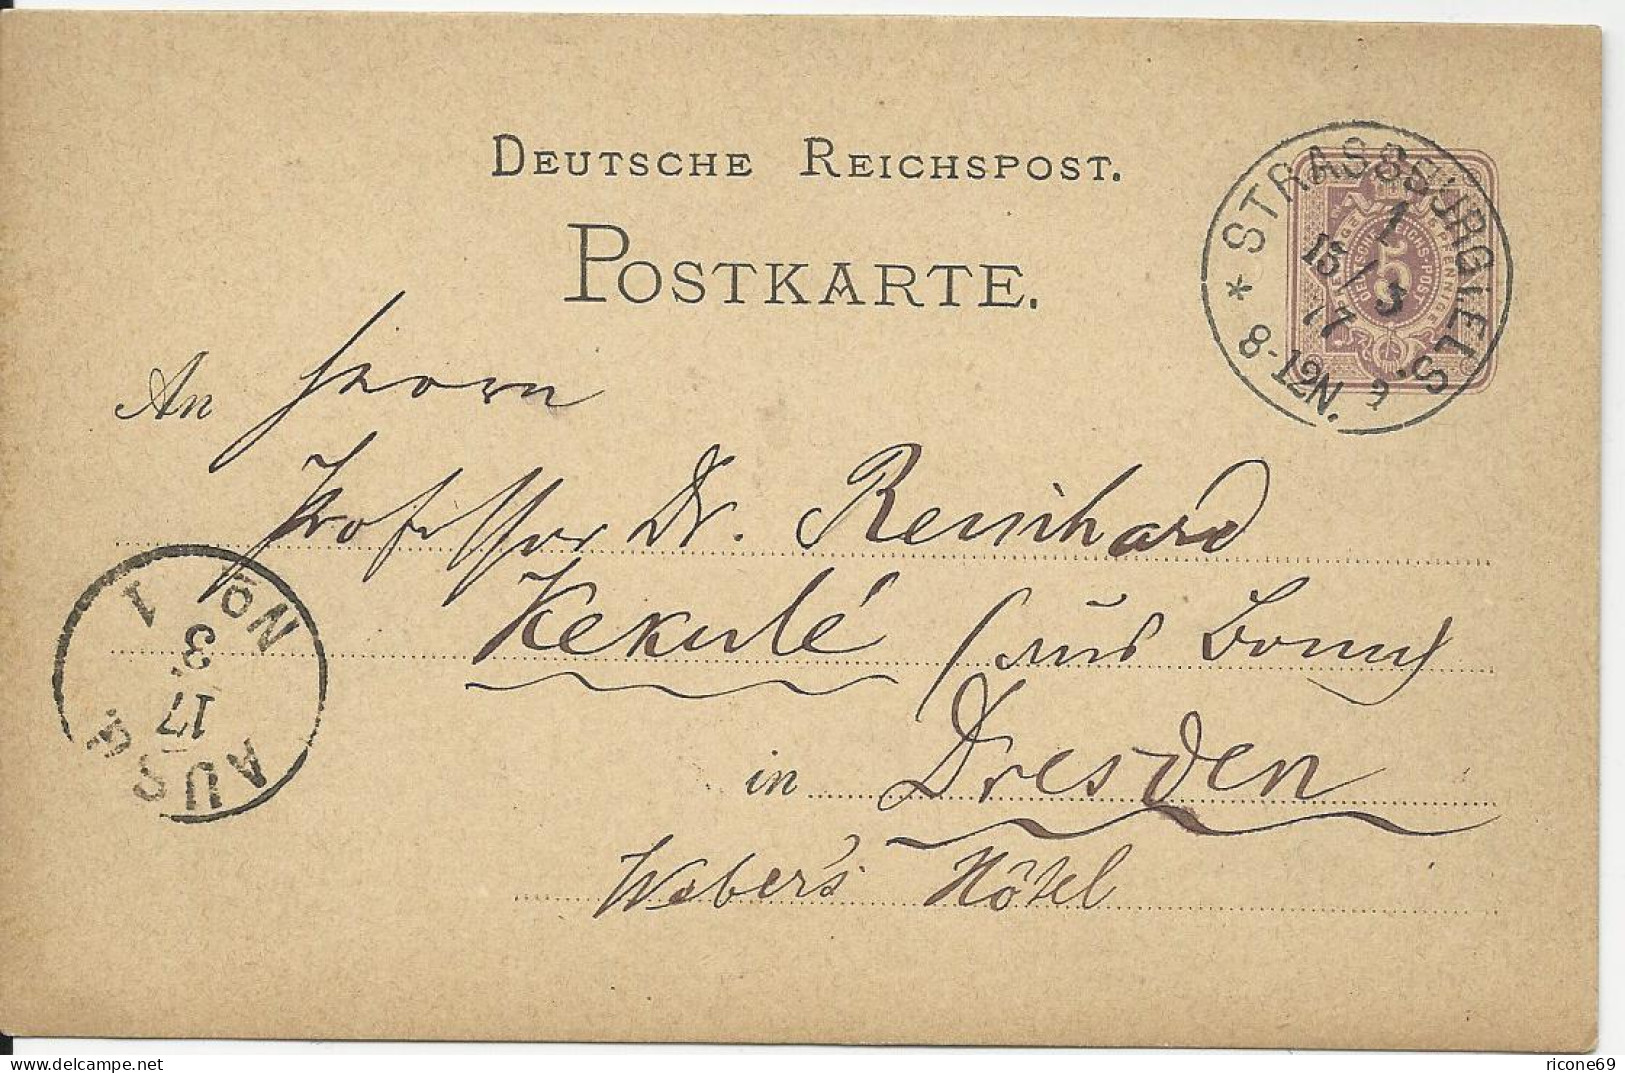 DEUTSCHE REICHSPOST.
POSTKARTE.
An Herrn
Professor Dr. Reinhard
Kekulé (aus Bonn)
in Dresden
Weber's Hôtel
* STRASSBURG i ELS. 2
1
15/3
77
8-12N.
5
AUSG.
No 1
17
3
ricone69